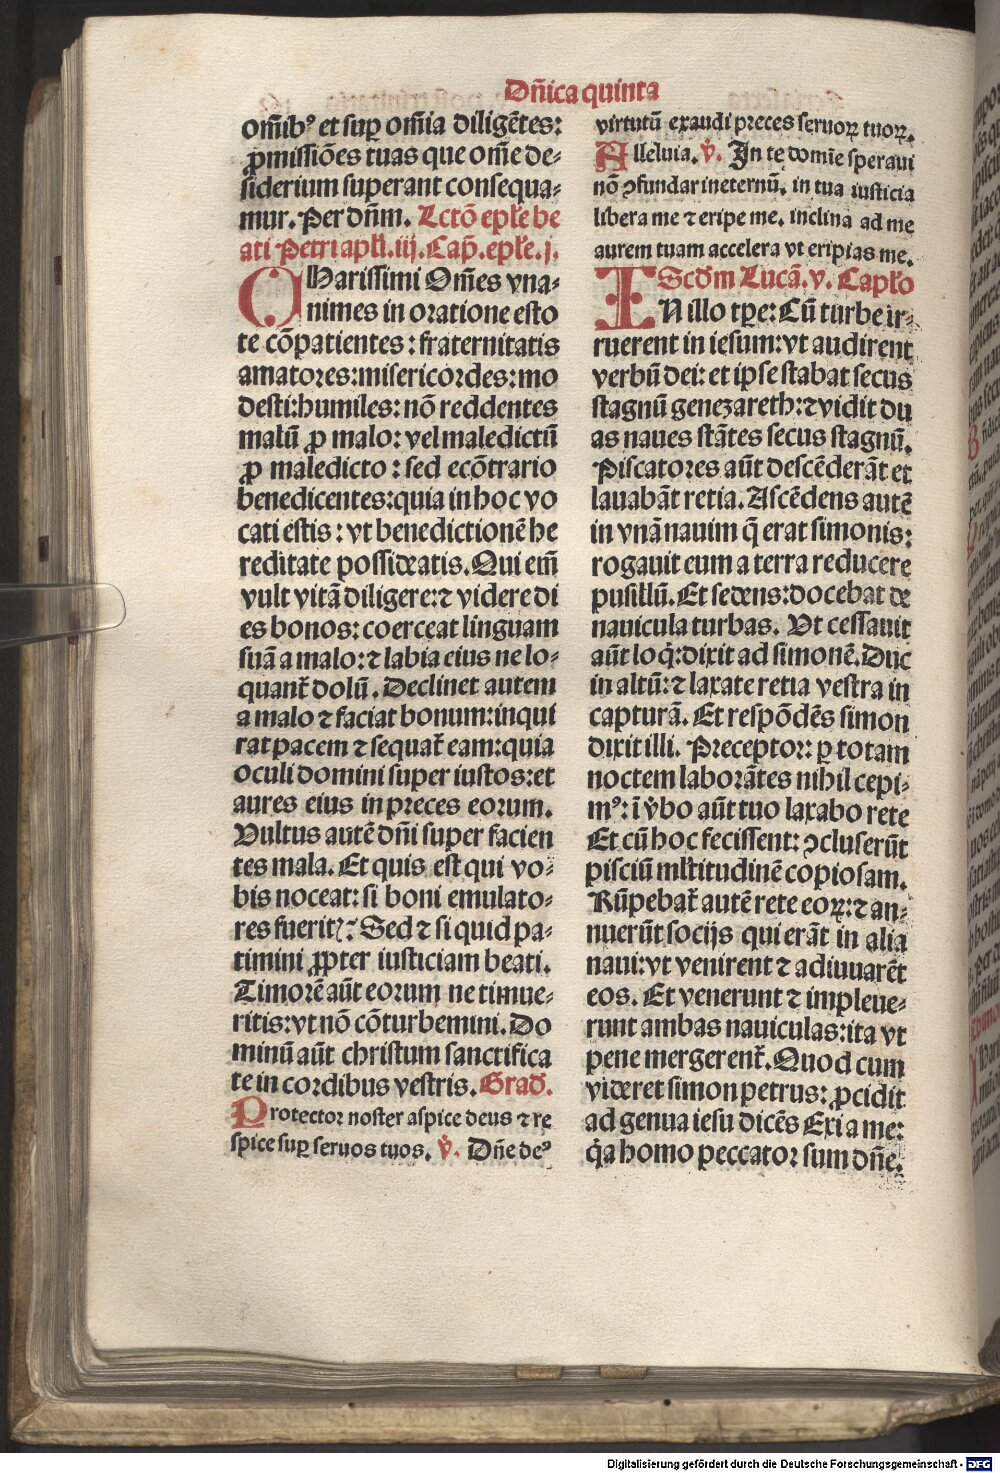 Dñica quinta
om̄ibꝰ et suꝑ om̄ia diligētes:
ꝓmissiōes tuas que om̄e de⸗
siderium superant consequa⸗
mur. Per dn̄m. Lctō epl̄e be
ati Petri apl̄i. iij. Cap̄. epl̄e. j.
CHarissimi Om̄es vna⸗
nimes in oratione esto
te cōpatientes: fraternitatis
amatores: misericordes: mo
desti: humiles: nō reddentes
malū ꝓ malo: vel maledictū
ꝓ maledicto: sed ecōtrario
benedicentes: quia in hoc vo
cati estis: vt benedictionē he
reditate possideatis. Qui em̄
vult vitā diligere: ⁊ videre di
es bonos: coerceat linguam
suā a malo: ⁊ labia eius ne lo⸗
quant̄ dolū. Declinet autem
a malo ⁊ faciat bonum: inqui
rat pacem ⁊ sequat̄ eam: quia
oculi domini super iustos: et
aures eius in preces eorum.
Vultus autē dn̄i super facien
tes mala. Et quis est qui vo⸗
bis noceat: si boni emulato⸗
res fuerit⁊: Sed ⁊ si quid pa⸗
timini ꝓpter iusticiam beati.
Timorē aūt eorum ne timue⸗
ritis: vt nō cōturbemini. Do
minū aūt christum sanctifica
te in cordibus vestris. Grad̄.
Protector noster aspice deus ⁊ re
spice suꝑ seruos tuos. v̄. Dn̄e deꝰ
virtutū exaudi preces seruoꝝ tuoꝝ.
Alleluia. v̄. In te domīe speraui
nō ꝯfundar ineternū. in tua iusticia
libera me ⁊ eripe me. inclina ad me
aurem tuam accelera vt eripias me.
Scd̄m Lucā. v. Capl̄o
IN illo tꝑe: Cū turbe ir⸗
ruerent in iesum: vt audirent
verbū dei: et ipse stabat secus
stagnū genezareth: ⁊ vidit du
as naues stātes secus stagnū.
Piscatores aūt descēderāt et
lauabāt retia. Ascēdens autē
in vnā nauim q̄ erat simonis:
rogauit eum a terra reducere
pusillū. Et sedens: docebat de
nauicula turbas. Vt cessauit
aūt loq̄: dixit ad simonē. Duc
in altū: ⁊ laxate retia vestra in
capturā. Et respōdēs simon
dixit illi. Preceptor: ꝑ totam
noctem laborātes nihil cepi⸗
mꝰ: ī v̄bo aūt tuo laxabo rete
Et cū hoc fecissent: ꝯcluserūt
pisciū ml̄titudinē copiosam.
Rūpebat̄ autē rete eoꝝ: ⁊ an⸗
nuerūt socijs qui erāt in alia
naui: vt venirent ⁊ adiuuarēt
eos. Et venerunt ⁊ impleue⸗
runt ambas nauiculas: ita vt
pene mergerent̄. Quod cum
videret simon petrus: ꝓcidit
ad genua iesu dicēs Exi a me:
q̄a homo peccator sum dn̄e.
Digitalisierung gefördert durch die Deutsche Forschungsgemeinschaft - DFG